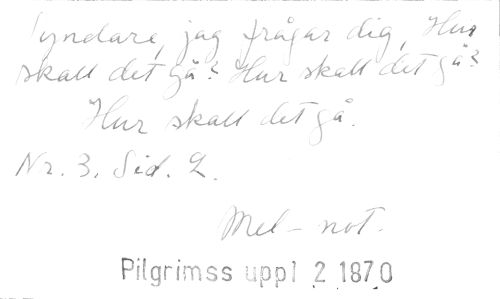 Syndare, jag frågar dig, Hur
skall det gå? Hur skall det gå?
Hur skall det gå.
Nr. 3. Sid. 2.
Mel - not.
Pilgrimss uppl 2 1870